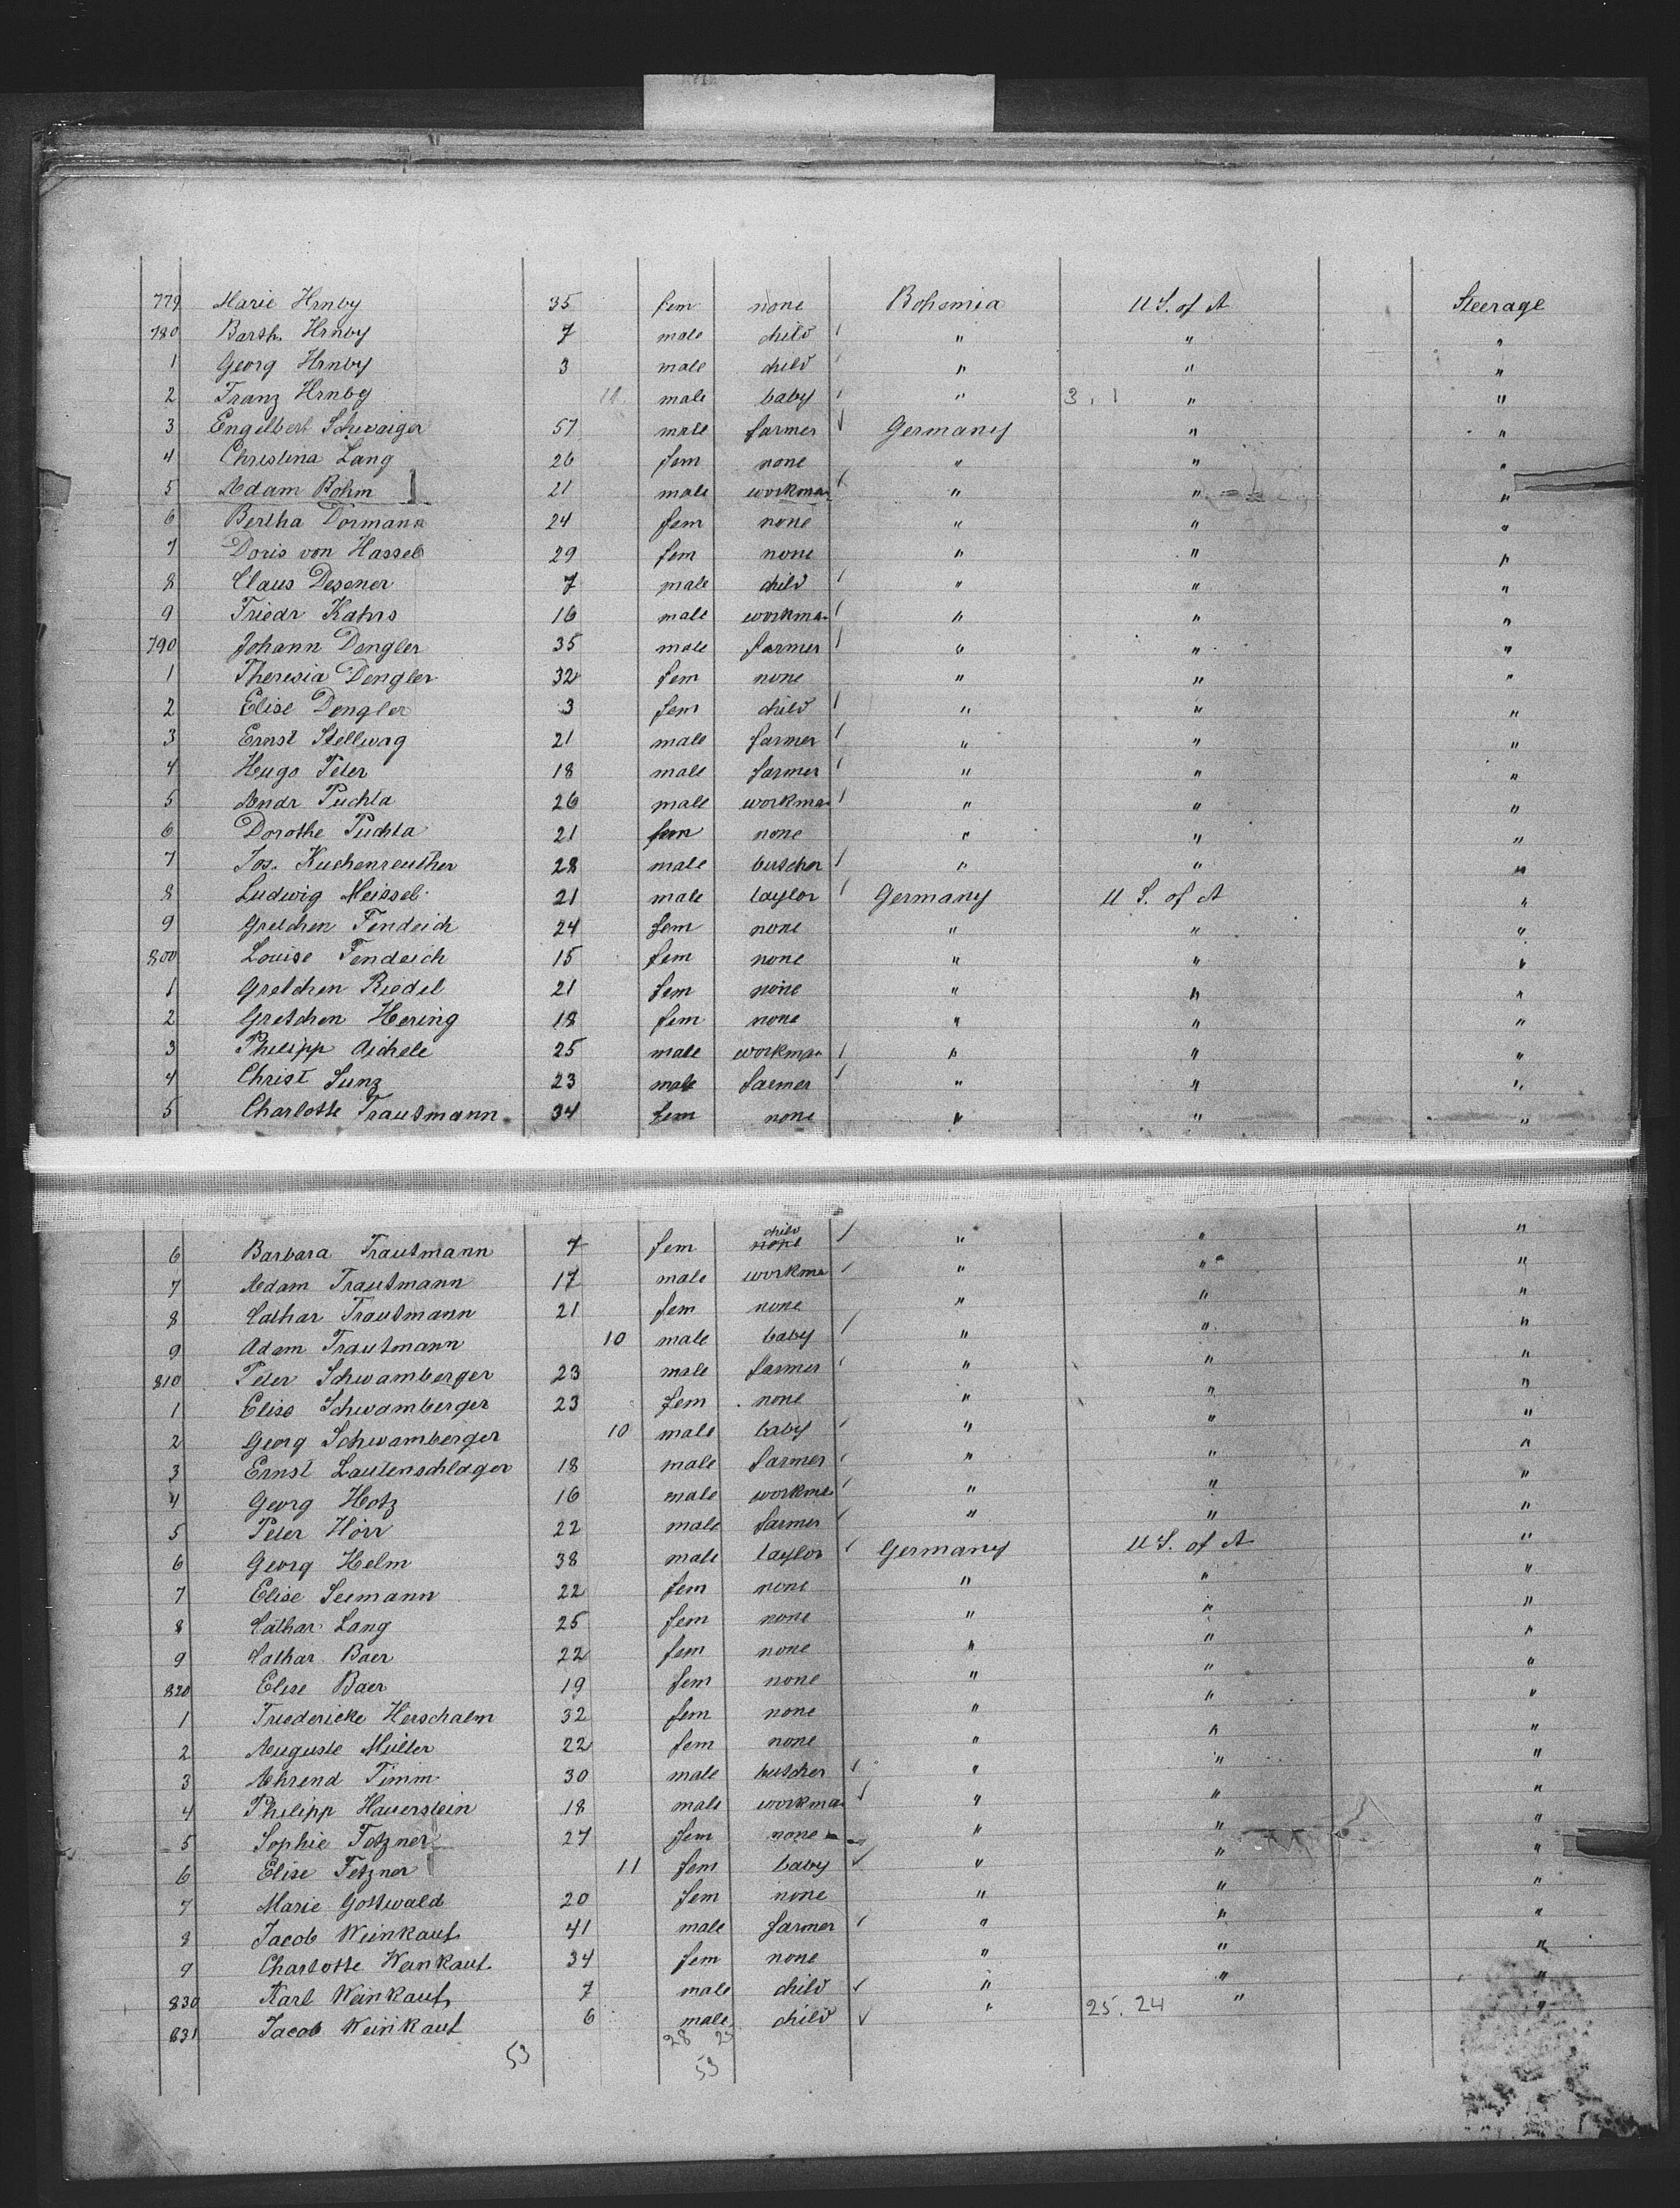 779 Marie Hrnby 35 fem none Bohemia U S. of A Steerage
780 Barth. Hrnby 7 male child " " "
1 Georg Hrnby 3 male child " " "
2 Franz Hrnby 11 male baby " 3. 1 " "
3 Engelbert Schwaiger 57 male farmer Germany " "
4 Christina Lang 26 fem none " " "
5 Adam Böhm 21 male workman " " "
6 Bertha Dormann 24 fem none " " "
7 Doris von Hassel 29 fem none " " "
8 Claus Desener 7 male child " " "
9 Friedr Kahrs 16 male workman " " "
790 Johann Dengler 35 male farmer " " "
1 Theresia Dengler 32 fem none " " "
2 Elise Dengler 3 fem child " " "
3 Ernst Stellwag 21 male farmer " " "
4 Hugo Peter 18 male farmer " " "
5 Andr Puchta 26 male workman " " "
6 Dorothe Puchta 21 fem none " " "
7 Jos. Kuchenreuther 28 male butscher " " "
8 Ludwig Meissel 21 male taylor Germany U S. of A "
9 Gretchen Fendeich 24 fem none " " "
800 Louise Fendeich 15 fem none " " "
1 Gretchen Riedel 21 fem none " " "
2 Gretchen Hering 18 fem none " " "
3 Philipp Aichele 25 male workman " " "
4 Christ Sunz 23 male farmer " " "
5 Charlotte Trautmann 34 fem none " " "
6 Barbara Trautmann 7 fem child none " " "
7 Adam Trautmann 17 male workma " " "
8 Cathar Trautmann 21 fem none " " "
9 Adam Trautmann 10 male baby " " "
810 Peter Schwamberger 23 male farmer " " "
1 Elise Schwamberger 23 fem none " " "
2 Georg Schwamberger 10 male baby " " "
3 Ernst Lautenschlager 18 male farmer " " "
4 Georg Hotz 16 male workma " " "
5 Peter Hörr 22 male farmer " " "
6 Georg Helm 38 male taylor Germany U S. of A "
7 Elise Seemann 22 fem none " " "
8 Cathar Lang 25 fem none " " "
9 Cathar Baer 22 fem none " " "
820 Elise Baer 19 fem none " " "
1 Friedericke Herschalm 32 fem none " " "
2 Auguste Müller 22 fem none " " "
3 Ahrend Timm 30 male butscher " " "
4 Philipp Hauerstein 18 male workman " " "
5 Sophie Fetzner 27 fem none " " "
6 Elise Fetzner 11 fem baby " " "
7 Marie Gottwald 20 fem none " " "
8 Jacob Weinkauf 41 male farmer " " "
9 Charlotte Weinkauf 34 fem none " " "
830 Karl Weinkauf 7 male child " " "
831 Jacob Weinkauf 6 male child " 25. 24 " "
53 28 25
53